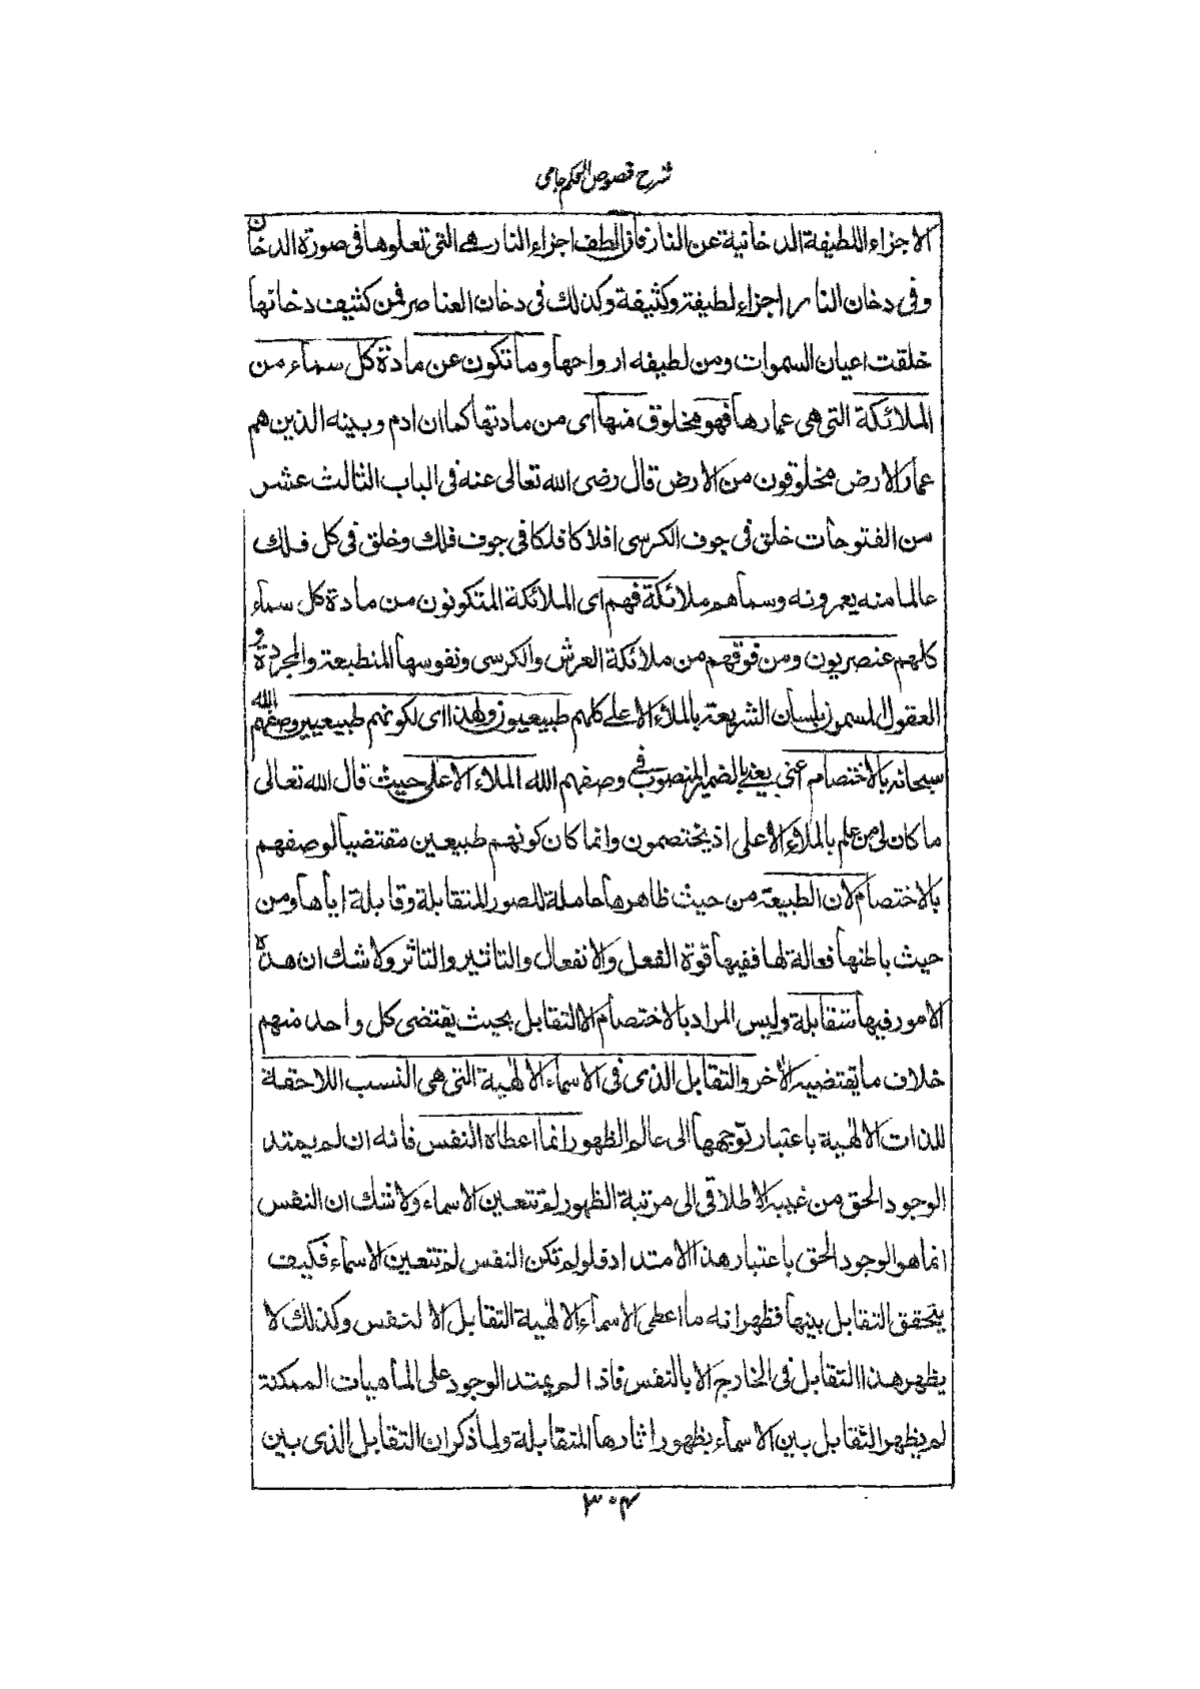 شرح فصوص الحكم جامی
الاجزاء اللطيفة الدخانية عن النار فان الطف اجزاء النار هي التى تعلوها فى صورة الدخان
وفى دخان النار اجزاء لطيفة وكثيفة وكذلك فى دخان العناصر فمن كثيف دخانها
خلقت اعيان السموات ومن لطيفه ارواحها وما تكون عن مادة كل سماء من
الملائكة التى هى عمارها فهو مخلوق منها اى من مادتها كما ان ادم وبينه الذين هم
عمار الارض مخلوقون من الارض قال رضى الله تعالى عنه فى الباب الثالث عشر
من الفتوحات خلق فى جوف الكرسى افلاكا فلكا فى جوف فلك وخلق فى كل فلك
عالما منه يعمرونه وسماهم ملائكة فهم اى الملائكة المتكونون من مادة كل سماء
كلهم عنصريون ومن فوقهم من ملائكة العرش والكرسى ونفوسها المنطبعة والمجردة و
العقول المسمون بلسان الشريعة بالملاء الاعلے كلهم طبيعيون ولهذا اى لكونهم طبيعيين وصفهم الله
سبحانه بالاختصام اعنى يعنے بالضمير المنصوب فے وصفهم الله الملاء الاعلى حيث قال الله تعالى
ما كان لى من علم بالملاء الاعلى اذ يختصمون وانما كان كونهم طبيعين مقتضيا لوصفهم
بالاختصام لان الطبيعة من حيث ظاهرها حاملة للصور المتقابلة وقابلة اياها ومن
حيث باطنها فعالة لها ففيها قوة الفعل والانفعال والتاثير والتاثر ولا شك ان هذه
الامور فيها متقابلة وليس المراد بالاختصام الا التقابل بحيث يقتضى كل واحد منهم
خلاف ما يقتضيه الأخر والتقابل الذى فى الاسماء الالهية التى هى النسب اللاحقة
للذات الالهية باعتبار توجهها الى عالم الظهور انما اعطاه النفس فانه ان لم يمتد
الوجود الحق من غيبه الاطلاقى الى مرتبة الظهور لم تتعين الاسماء ولا شك ان النفس
انما هو الوجود الحق باعتبار هذا الامتداد فلو لم تكن النفس لم تتعين الاسماء فكيف
يتحقق التقابل بينها فظهر انه ما اعطى الاسماء الالهية التقابل الا النفس وكذلك لا
يظهر هذا التقابل فى الخارج الا بالنفس فاذا لم يمتد الوجود على الماهيات الممكنة
لم يظهر التقابل بين الاسماء بظهور اثارها المتقابلة ولما ذكر ان التقابل الذى بين
۳۰۴